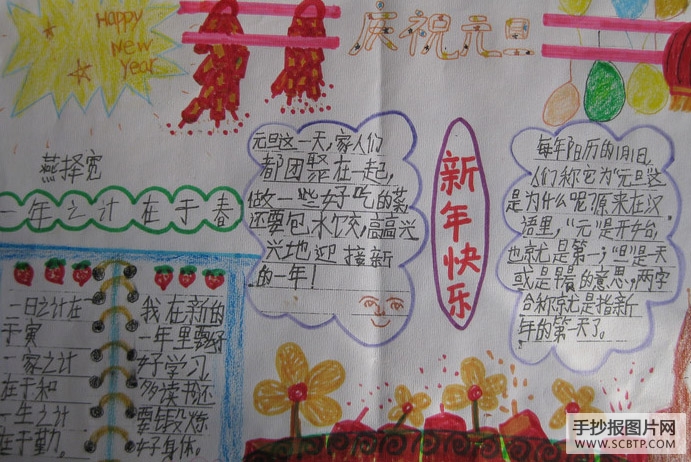 Happy
New
Year
庆祝元旦
燕择宽
一年之计在于春
一日之计在
于寅
一家之计
在于和
一生之计
在于勤。
我在新的
一年里要好
好学习,
多读书还
要锻炼
好身体。
元旦这一天,家人们
都团聚在一起,
做一些好吃的菜
还要包水饺,高高兴
兴地迎接新
的一年!
新年快乐
每年阳历的1月1日,
人们称它为“元旦这
是为什么呢?原来在汉
语里,“元”是开始,
也就是第一;“旦”是天
或是早晨的意思,两字
合称就是指新
年的第一天了。
手抄报图片网
WWW.SCBTP.COM